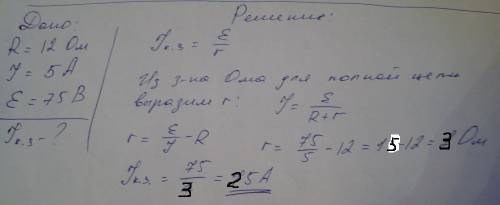 Дано:
R = 12 Ом
I = 5 А
Ɛ = 75 В
Iк.з - ?
Решение:
Iк.з = Ɛ/r
Из з-на Ома для полной цепи
выразим r: I = Ɛ/(R+r)
r = Ɛ/I - R r = 75/5 - 12 = 15-12 = 3 Ом
Iк.з. = 75/3 = 25А